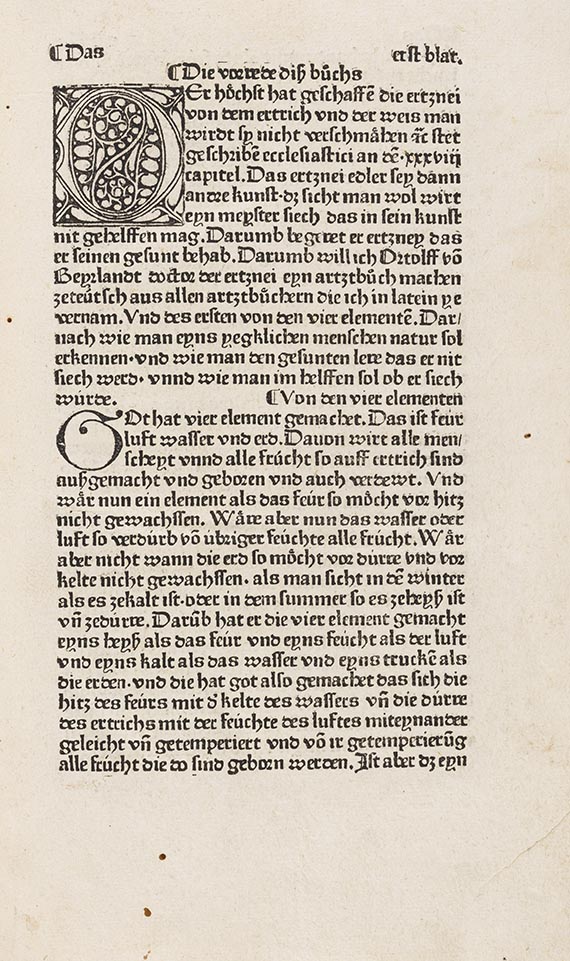 ¶Das erst blat.
¶Die vorrede diß bůchs
DEr hȯchst hat geschaffē die ertznei
von dem ertrich vnd der weis man
wirdt sy nicht verschmåhen ⁊c̄ stet
geschribē ecclesiastici an dē·xxxviij
capitel. Das ertznei edler sey dann
andre kunst·dz sicht man wol wirt
eyn meyster siech das in sein kunst
nit gehelffen mag. Darumb begeret er ertzney das
er seinen gesunt behab. Darumb will ich Ortolff vō
Beyrlandt doctor der ertznei eyn artztbůch machen
zeteütsch aus allen artztbůchern die ich in latein ye
vernam. Vnd des ersten von den vier elementē. Dar/
nach wie man eyns yegklichen menschen natur sol
erkennen·vnd wie man den gesunten lere das er nit
siech werd· vnnd wie man im helffen sol ob er siech
würde. ¶Von den vier elementen
GOt hat vier element gemachet. Das ist feür
luft wasser vnd erd. Dauon wirt alle men/
scheyt vnnd alle frücht so auff ertrich sind
außgemacht vnd geboren vnd auch verdewt. Vnd
wår nun ein element als das feür so mȯcht vor hitz
nicht gewachssen. Wåre aber nun das wasser oder
luft so verdürb vō übriger feüchte alle frücht. Wår
aber nicht wann die erd so mȯcht vor dürre vnd vor
kelte nicht gewachssen· als man sicht in dē winter
als es zekalt ist·oder in dem summer so es zeheyß ist
vn̄ zedürre. Darūb hat er die vier element gemacht
eyns heyß als das feür vnd eyns feücht als der luft
vnd eyns kalt als das wasser vnd eyns truckē als
die erden·vnd die hat got also gemachet das sich die
hitz des feürs mit d̄ kelte des wassers vn̄ die dürre
des ertrichs mit der feüchte des luftes miteynander
geleicht vn̄ getemperiert vnd vō ir getemperierūg
alle frücht die do sind geborn werden. Ist aber dz eyn